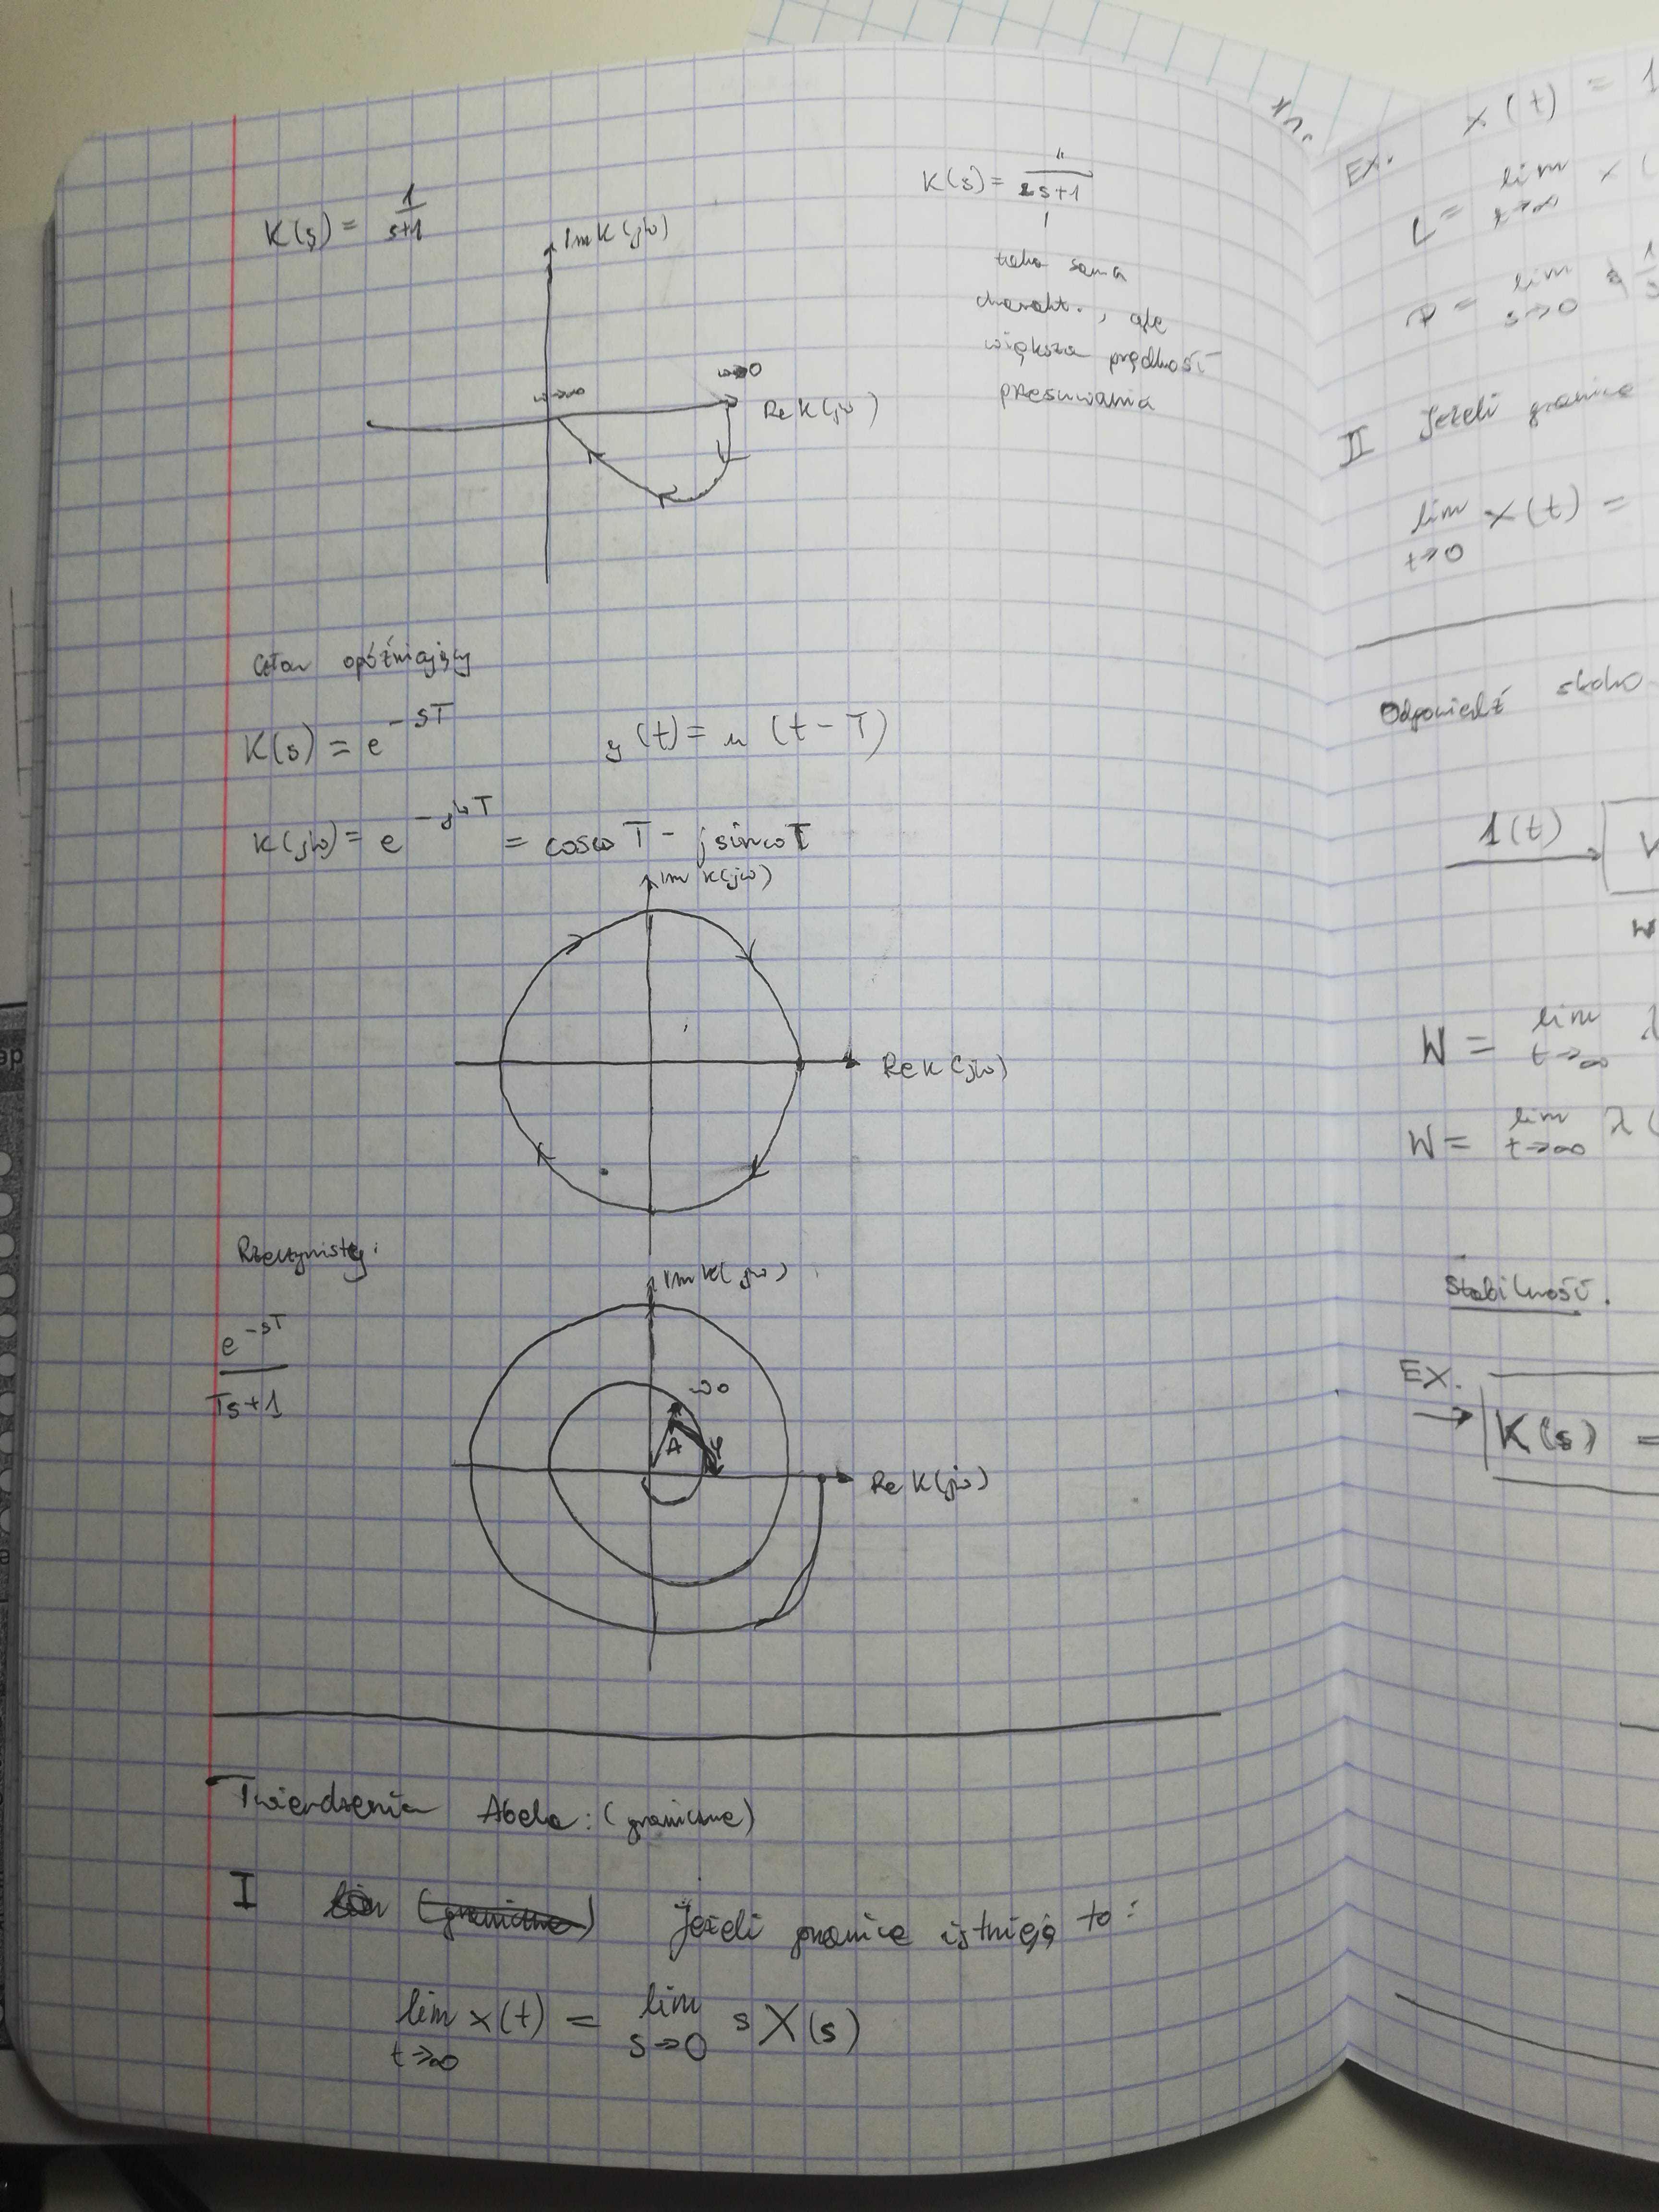 K(s) = 1/(s+1)
Im K(jω)
ω→∞
ω→0
Re K(jω)
K(s) = 1/(2s+1)
taka sama
charakt., ale
większa prędkość
przesuwania
Człon opóźniający
K(s) = e^{-sT}    y(t) = u(t-T)
K(jω) = e^{-jωT} = cosωT - jsinωT
Im K(jω)
Re K(jω)
Rzeczywisty:
e^{-sT}/(Ts+1)
Im K(jω)
A
φ
Re K(jω)
Twierdzenia Abela: (graniczne)
I    Jeżeli granice istnieją to:
lim x(t) = lim s X(s)
t→∞    s→0
Ex.    x(t) = 1
L = lim x(
t→∞
P = lim
s→0
II Jeżeli granice
lim x(t) =
t→0
Odpowiedź skoko
1(t)
W = lim λ
t→∞
W = lim λ(
t→∞
Stabilność.
EX.
K(s) =